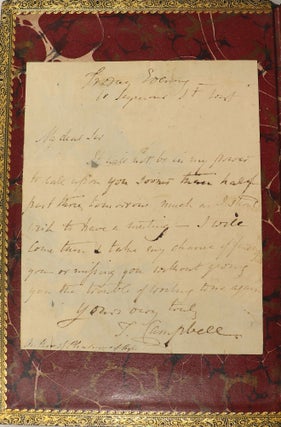 Friday Evening
10 Seymour St West
My dear Sir
It will not be in my power
to call upon you sooner than half
past three tomorrow much as I should
wish to have a meeting — I will
come then & take my chance of finding
you or missing you without giving
you the trouble of writing to me again
Yours very truly
T. Campbell